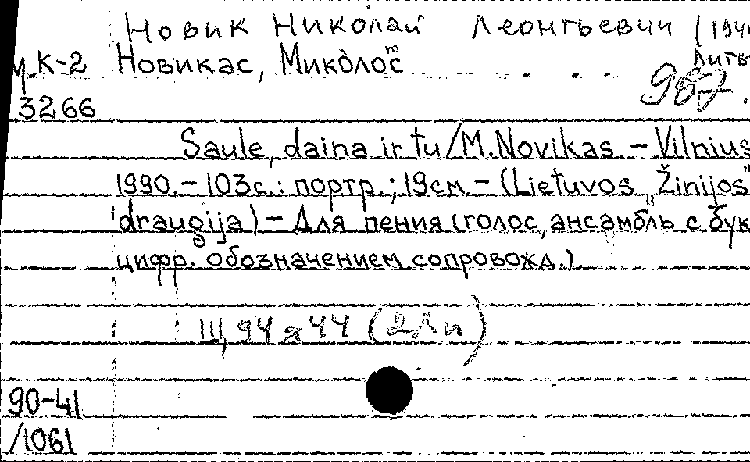 Новик Николай Леонтьевич (194
М.К-2 Новикас, Миколос Литв
3266 987.
Saule, daina ir tu/M.Novikas. – Vilnius
1990.–103с.: портр.; 19см.–(Lietuvos "Žinijos"
draugija)–Для пения (голос, ансамбль с бук
цифр. обозначением сопровожд.)
Щ94я44 (2Ли)
90-41
/1061